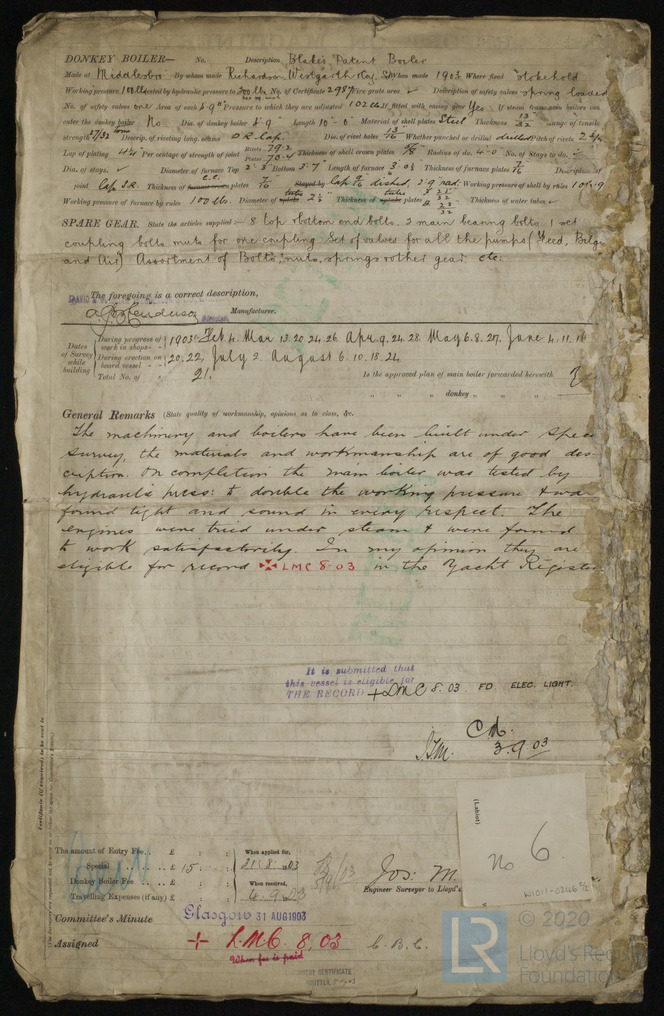 DONKEY BOILER— No. Description Blake's Patent Boiler
Made at Middlesbro By whom made Richardson Westgarth & Co. When made 1903 Where fixed Stokehold
Working pressure 100 lbs tested by hydraulic pressure to 200 lbs No. of Certificate 2987 Fire grate area Description of safety valves spring loaded
No. of safety valves one Area of each 5.9" Pressure to which they are adjusted 102 lbs If fitted with easing gear Yes If steam from main boilers can
enter the donkey boiler No Dia. of donkey boiler Length 10-0 Material of shell plates Steel Thickness 13/32 Range of tensile
strength 27/32 tons Descrip. of riveting long. seams D.R. Lap. Dia. of rivet holes 13/16 Whether punched or drilled drilled Pitch of rivets
Lap of plating 4 1/4 Per centage of strength of joint Rivets 79.2 Plates 70.4 Thickness of shell crown plates Radius of do. 4-0 No. of Stays to do.
Dia. of stays. Diameter of furnace Top Bottom 3-7 Length of furnace Thickness of furnace plates Description of
joint Lap S.R. Thickness of plates 9/16 Stayed by dished, Working pressure of shell by rules
Working pressure of furnace by rules 100 lbs. Diameter of tubes 2 1/2 Thickness of tube plates Thickness of water tubes
SPARE GEAR. State the articles supplied:— 8 top & bottom end bolts. 2 main bearing bolts. 1 set
coupling bolts & nuts for one coupling. Set of valves for all the pumps (Feed, Bilge
and Air). Assortment of Bolts, nuts, springs & other gear etc.
The foregoing is a correct description,
Manufacturer.
Dates of Survey while building
During progress of work in shops - - 1903: Feb 4. Mar 13. 20. 24. 26. Apr 9. 24. 28. May 6. 8. 27. June 4. 11. 16
During erection on board vessel - - 20. 22. July 2. August 6. 10. 18. 24.
Total No. of 21. Is the approved plan of main boiler forwarded herewith
" " " donkey " " "
General Remarks (State quality of workmanship, opinions as to class, &c.
The machinery and boilers have been built under Spec
survey, the materials and workmanship are of good des-
cription. On completion the main boiler was tested by
hydraulic press: to double the working pressure & wa
found tight and sound in every respect. The
engines were tried under steam & were found
to work satisfactorily. In my opinion they are
eligible for record LMC 8.03 in the Yacht Register
It is submitted that
this vessel is eligible for
THE RECORD + LMC 8.03 FD. ELEC. LIGHT.
3.9.03
(Label)
No 6
W1011-0246 2/2
The amount of Entry Fee . . £ : : When applied for,
Special . . . . £ 15 : : 31.8.03
Donkey Boiler Fee . . . £ : : When received,
Travelling Expenses (if any) £ : : 4.9.03
Jos: M.
Engineer Surveyor to Lloyd's
Committee's Minute Glasgow 31 AUG 1903
Assigned + L.M.C. 8.03
When fee is paid
CERTIFICATE
WRITTEN
LR © 2020
Lloyd's Register
Foundation